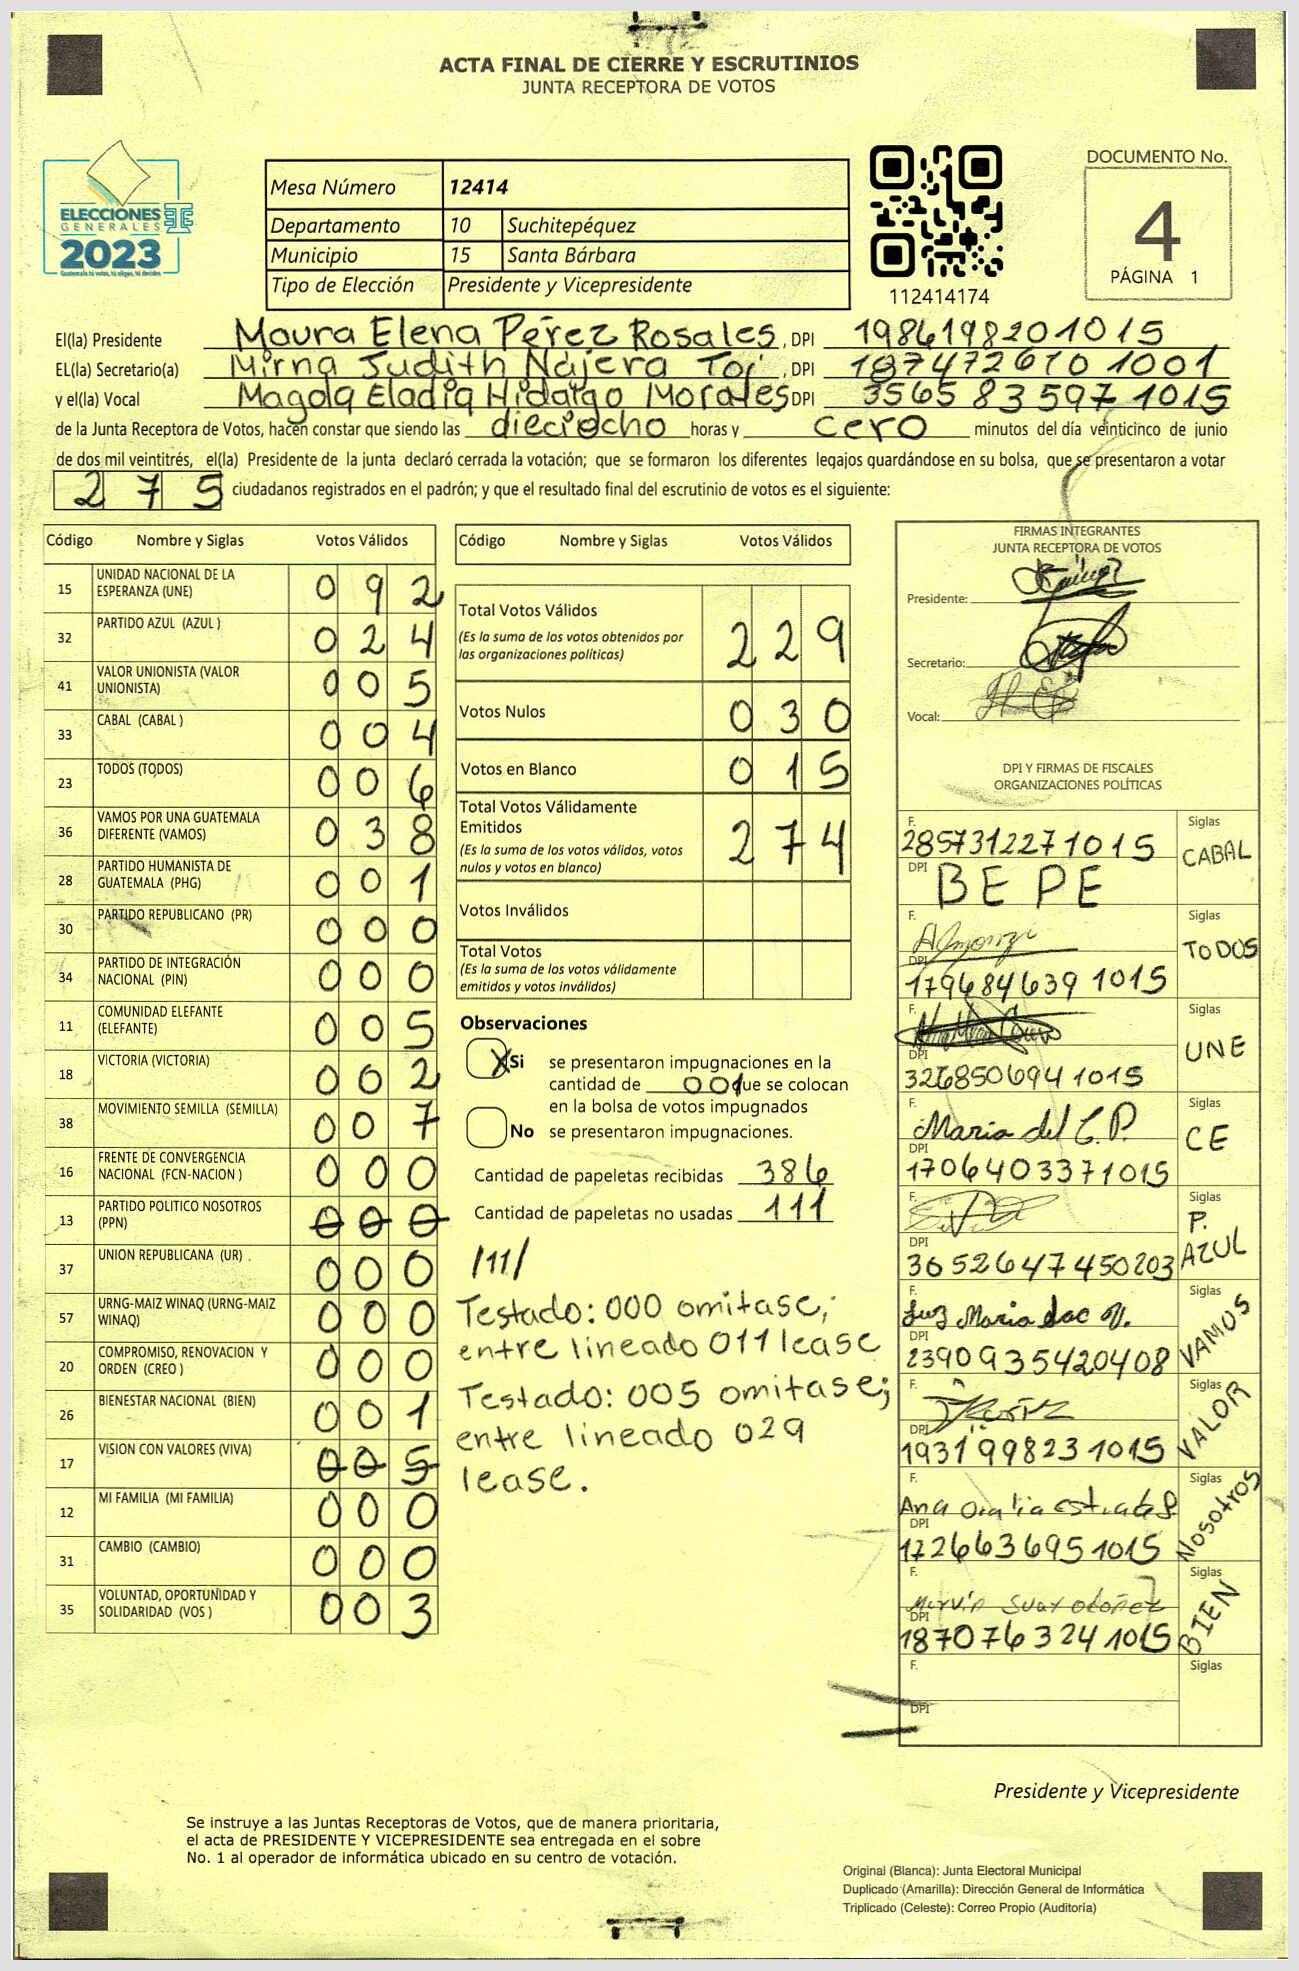 ACTA FINAL DE CIERRE Y ESCRUTINIOS
JUNTA RECEPTORA DE VOTOS
ELECCIONES
GENERALES
2023
Guatemala tú votas, tú eliges, tú decides
Mesa Número 12414
Departamento 10 Suchitepéquez
Municipio 15 Santa Bárbara
Tipo de Elección Presidente y Vicepresidente
112414174
DOCUMENTO No.
4
PÁGINA 1
El(la) Presidente Maura Elena Pérez Rosales, DPI 1986198201015
EL(la) Secretario(a) Mirna Judith Nájera Toj, DPI 1874726101001
y el(la) Vocal Magda Eladia Hidalgo Morales DPI 3565835971015
de la Junta Receptora de Votos, hacen constar que siendo las dieciocho horas y cero minutos del día veinticinco de junio
de dos mil veintitrés, el(la) Presidente de la junta declaró cerrada la votación; que se formaron los diferentes legajos guardándose en su bolsa, que se presentaron a votar
275 ciudadanos registrados en el padrón; y que el resultado final del escrutinio de votos es el siguiente:
Código Nombre y Siglas Votos Válidos
15 UNIDAD NACIONAL DE LA ESPERANZA (UNE) 092
32 PARTIDO AZUL (AZUL ) 024
41 VALOR UNIONISTA (VALOR UNIONISTA) 005
33 CABAL (CABAL ) 004
23 TODOS (TODOS) 006
36 VAMOS POR UNA GUATEMALA DIFERENTE (VAMOS) 038
28 PARTIDO HUMANISTA DE GUATEMALA (PHG) 001
30 PARTIDO REPUBLICANO (PR) 000
34 PARTIDO DE INTEGRACIÓN NACIONAL (PIN) 000
11 COMUNIDAD ELEFANTE (ELEFANTE) 005
18 VICTORIA (VICTORIA) 002
38 MOVIMIENTO SEMILLA (SEMILLA) 007
16 FRENTE DE CONVERGENCIA NACIONAL (FCN-NACION ) 000
13 PARTIDO POLITICO NOSOTROS (PPN) 000
37 UNION REPUBLICANA (UR) 000
57 URNG-MAIZ WINAQ (URNG-MAIZ WINAQ) 000
20 COMPROMISO, RENOVACION Y ORDEN (CREO ) 000
26 BIENESTAR NACIONAL (BIEN) 001
17 VISION CON VALORES (VIVA) 005
12 MI FAMILIA (MI FAMILIA) 000
31 CAMBIO (CAMBIO) 000
35 VOLUNTAD, OPORTUNIDAD Y SOLIDARIDAD (VOS ) 003
Código Nombre y Siglas Votos Válidos
Total Votos Válidos 229
(Es la suma de los votos obtenidos por
las organizaciones políticas)
Votos Nulos 030
Votos en Blanco 015
Total Votos Válidamente
Emitidos 274
(Es la suma de los votos válidos, votos
nulos y votos en blanco)
Votos Inválidos
Total Votos
(Es la suma de los votos válidamente
emitidos y votos inválidos)
Observaciones
X Si se presentaron impugnaciones en la
cantidad de 001 que se colocan
en la bolsa de votos impugnados
No se presentaron impugnaciones.
Cantidad de papeletas recibidas 386
Cantidad de papeletas no usadas 111
/11/
Testado: 000 omitase;
entre lineado 011 lease
Testado: 005 omitase;
entre lineado 029
lease.
FIRMAS INTEGRANTES
JUNTA RECEPTORA DE VOTOS
Presidente:
Secretario:
Vocal:
DPI Y FIRMAS DE FISCALES
ORGANIZACIONES POLÍTICAS
F. 2857312271015 Siglas CABAL
DPI BEPE
F. Siglas TODOS
DPI 1796846391015
F. Siglas UNE
DPI 3268506941015
F. Maria del C.P. Siglas CE
DPI 1706403371015
F. Siglas P. AZUL
DPI 3652647450203
F. Luz Maria Siglas VAMOS
DPI 2390935420408
F. Siglas VALOR
DPI 1931998231015
F. Ana Oralia estrada Siglas Nosotros
DPI 1726636951015
F. Siglas BIEN
DPI 1870763241015
F. Siglas
DPI
Presidente y Vicepresidente
Se instruye a las Juntas Receptoras de Votos, que de manera prioritaria,
el acta de PRESIDENTE Y VICEPRESIDENTE sea entregada en el sobre
No. 1 al operador de informática ubicado en su centro de votación.
Original (Blanca): Junta Electoral Municipal
Duplicado (Amarilla): Dirección General de Informática
Triplicado (Celeste): Correo Propio (Auditoría)